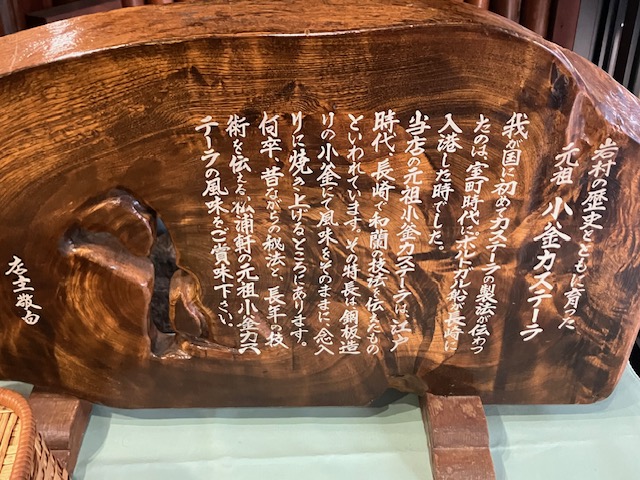 岩村の歴史とともに育った
元祖 小釜カステーラ
我が国に初めてカステーラの製法が伝わっ
たのは、室町時代にポルトガル船が長崎に
入港した時でした。
当店の元祖小釜カステーラは、江戸
時代、長崎で和蘭の技法を伝えたもの
といわれています。その特長は銅板造
りの小釜にて風味をそのままに、念入
りに焼き上げるところにあります。
何卒、昔ながらの秘法と、長年の技
術を伝える松浦軒の元祖小釜カス
テーラの風味をご賞味下さい。
店主敬白